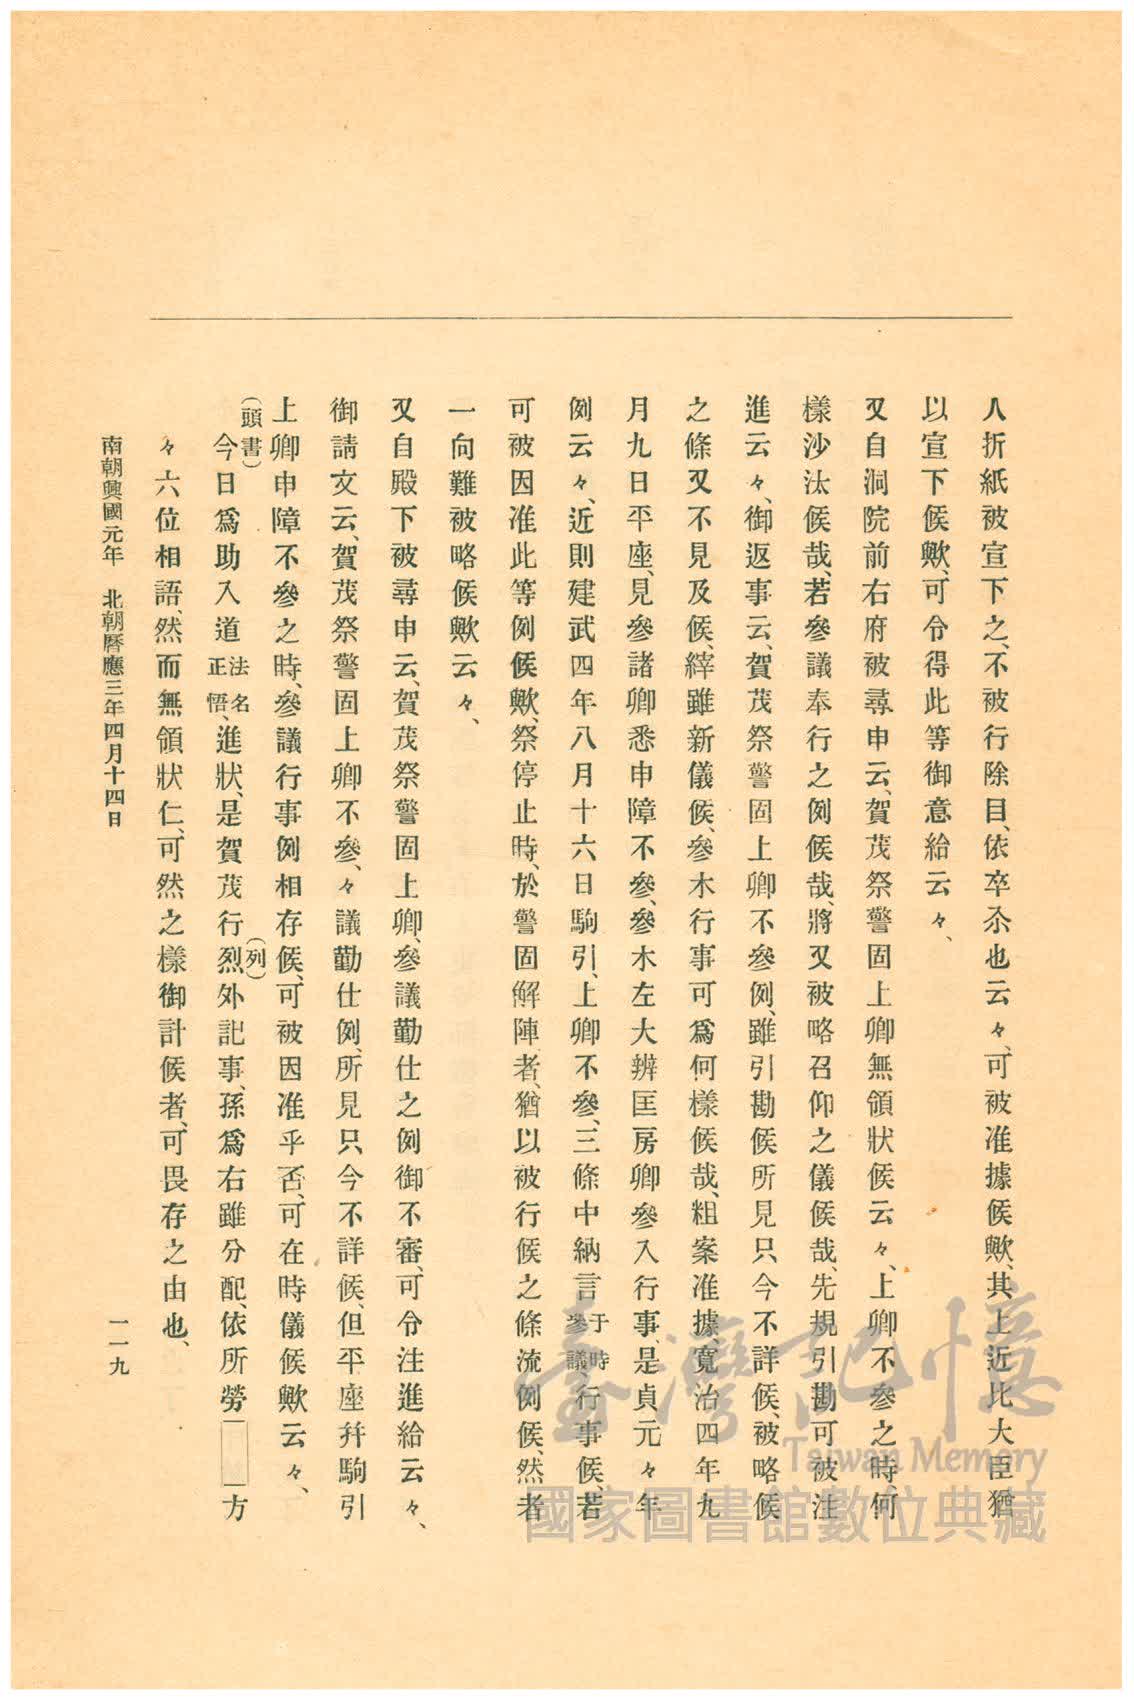 人折紙被宣下之、不被行除目、依卒尒也云々、可被准據候歟、其上近比大臣猶
以宣下候歟、可令得此等御意給云々、
又自洞院前右府被尋申云、賀茂祭警固上卿無領狀候云々、上卿不參之時何
樣沙汰候哉、若參議奉行之例候哉、將又被略召仰之儀候哉、先規引勘可被注
進云々、御返事云、賀茂祭警固上卿不參例、雖引勘候所見只今不詳候、被略候
之條又不見及候、縡雖新儀候、參木行事可爲何樣候哉、粗案准據、寬治四年九
月九日平座、見參諸卿悉申障不參、參木左大辨匡房卿參入行事、是貞元々年
例云々、近則建武四年八月十六日駒引、上卿不參、三條中納言于時參議、行事候、若
可被因准此等例候歟、祭停止時、於警固解陣者、猶以被行候之條流例候、然者
一向難被略候歟云々、
又自殿下被尋申云、賀茂祭警固上卿、參議勤仕之例御不審、可令注進給云々、
御請文云、賀茂祭警固上卿不參、々議勤仕例、所見只今不詳候、但平座幷駒引
上卿申障不參之時、參議行事例相存候、可被因准乎否、可在時儀候歟云々、
(頭書)
今日爲助入道法名正悟、進狀、是賀茂行烈(列)外記事、孫爲右雖分配、依所勞□□方
々六位相語、然而無領狀仁、可然之樣御計候者、可畏存之由也、
南朝興國元年　北朝曆應三年四月十四日
一一九
臺灣記憶
Taiwan Memory
國家圖書館數位典藏